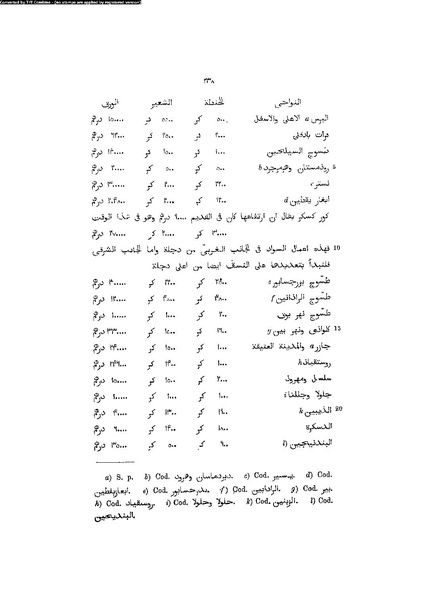 Converted by Tiff Combine - (no stamps are applied by registered version)
٢٣٨
النواحى الحنطة الشعير الورق
البرس a الاعلى والاسفل ٥٠٠ كر ٥٥٠٠ كر ١٥٠٠٠٠ درهم
فرات بادقلى ٢٠٠٠ كر ٢٥٠٠ كر ٦٢٠٠٠ درهم
طسوج السيلحين ١٠٠٠ كر ١٥٠٠ كر ١٤٠٠٠٠ درهم
روذمستان وهرمزجرد b ٥٠٠ كر ٥٠٠ كر ٢٠٠٠٠ درهم
تستر c ٢٢٠٠ كر ٢٠٠٠ كر ٣٠٠٠٠٠ درهم
ايغار يقطين d ١٢٠٠ كر ٢٠٠٠ كر ٢٠٤٨٠٠ درهم
كور كسكر يقال ان ارتفاعها كان فى القديم ٩٠٠٠٠ درهم وهو فى هذا الوقت
٣٠٠٠٠ كر ٢٠٠٠٠ كر ٢٧٠٠٠٠ درهم
10 فهذه اعمال السواد فى الجانب الغربىّ من دجلة واما الجانب الشرقى
فلنبدأ بتعديدها على النسق ايضا من اعلى دجلة
طسّوج بزرجسابور e ٢٥٠٠ كر ٢٢٠٠ كر ٣٠٠٠٠٠ درهم
طسّوج الراذانين f ٤٨٠٠ كر ٤٨٠٠ كر ١٢٠٠٠٠ درهم
طسّوج نهر بوق ٢٠٠ كر ١٠٠٠ كر ١٠٠٠٠٠ درهم
15 كلواذى ونهر بين g ١٦٠٠ كر ١٥٠٠ كر ٣٣٠٠٠٠ درهم
جازر والمدينة العتيقة ١٠٠٠ كر ١٥٠٠ كر ٢٤٠٠٠٠ درهم
روستقباذ h ١٠٠٠ كر ١٤٠٠ كر ٢٤٦٠٠٠ درهم
سلسل ومهرود ٢٠٠٠ كر ١٥٠٠ كر ١٥٠٠٠٠ درهم
جلولا وجللتا i ١٠٠٠ كر ١٠٠٠ كر ١٠٠٠٠٠ درهم
20 الذيبين k ١٩٠٠ كر ١٣٠٠ كر ٤٠٠٠٠ درهم
الدسكرة ١٨٠٠ كر ١٤٠٠ كر ٦٠٠٠٠ درهم
البندنيجين l ٦٠٠ كر ٥٠٠ كر ٣٥٠٠٠ درهم
a) S. p. b) Cod. ديردماسان وهرود. c) Cod. يسير. d) Cod.
ابعاريقطين. e) Cod. بندرحسابور. f) Cod. الرادابين. g) Cod. بير.
h) Cod. روستقياد. i) Cod. حلولا وحلولا. k) Cod. الزينين. l) Cod.
البنديحين.